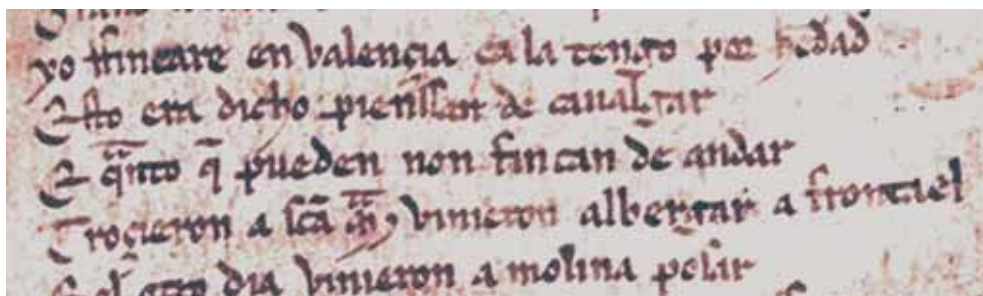 yo ffincare en valençia ca la tengo por hedad
Esto era dicho pienssan de caualgar
E q̃nto q̃ pueden non fincan de andar
Troçieron a sc̃a m̃a ⁊ vinieron albergar a frontael
E el otro dia vinieron a molina posar